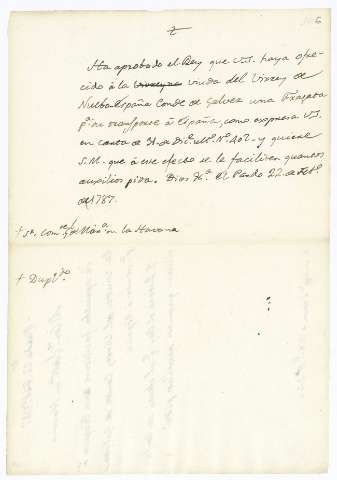 Ha aprobado el Rey que V.S. haya ofre-
cido à la Virreyna viuda del Virrey de
Nueba España Conde de Galvez una Fragata
pª su transporte à España, como expresa V.S.
en carta de 31. de Dicᵉ. ulto. Nº. 402. y quiere
S.M. que à este efecto se le faciliten quantos
auxilios pida. Dios &ª. El Pardo 22. de Febº.
de 1787.
† Sr. Comte. gl. de Marª. en la Havana
† Dupdo.